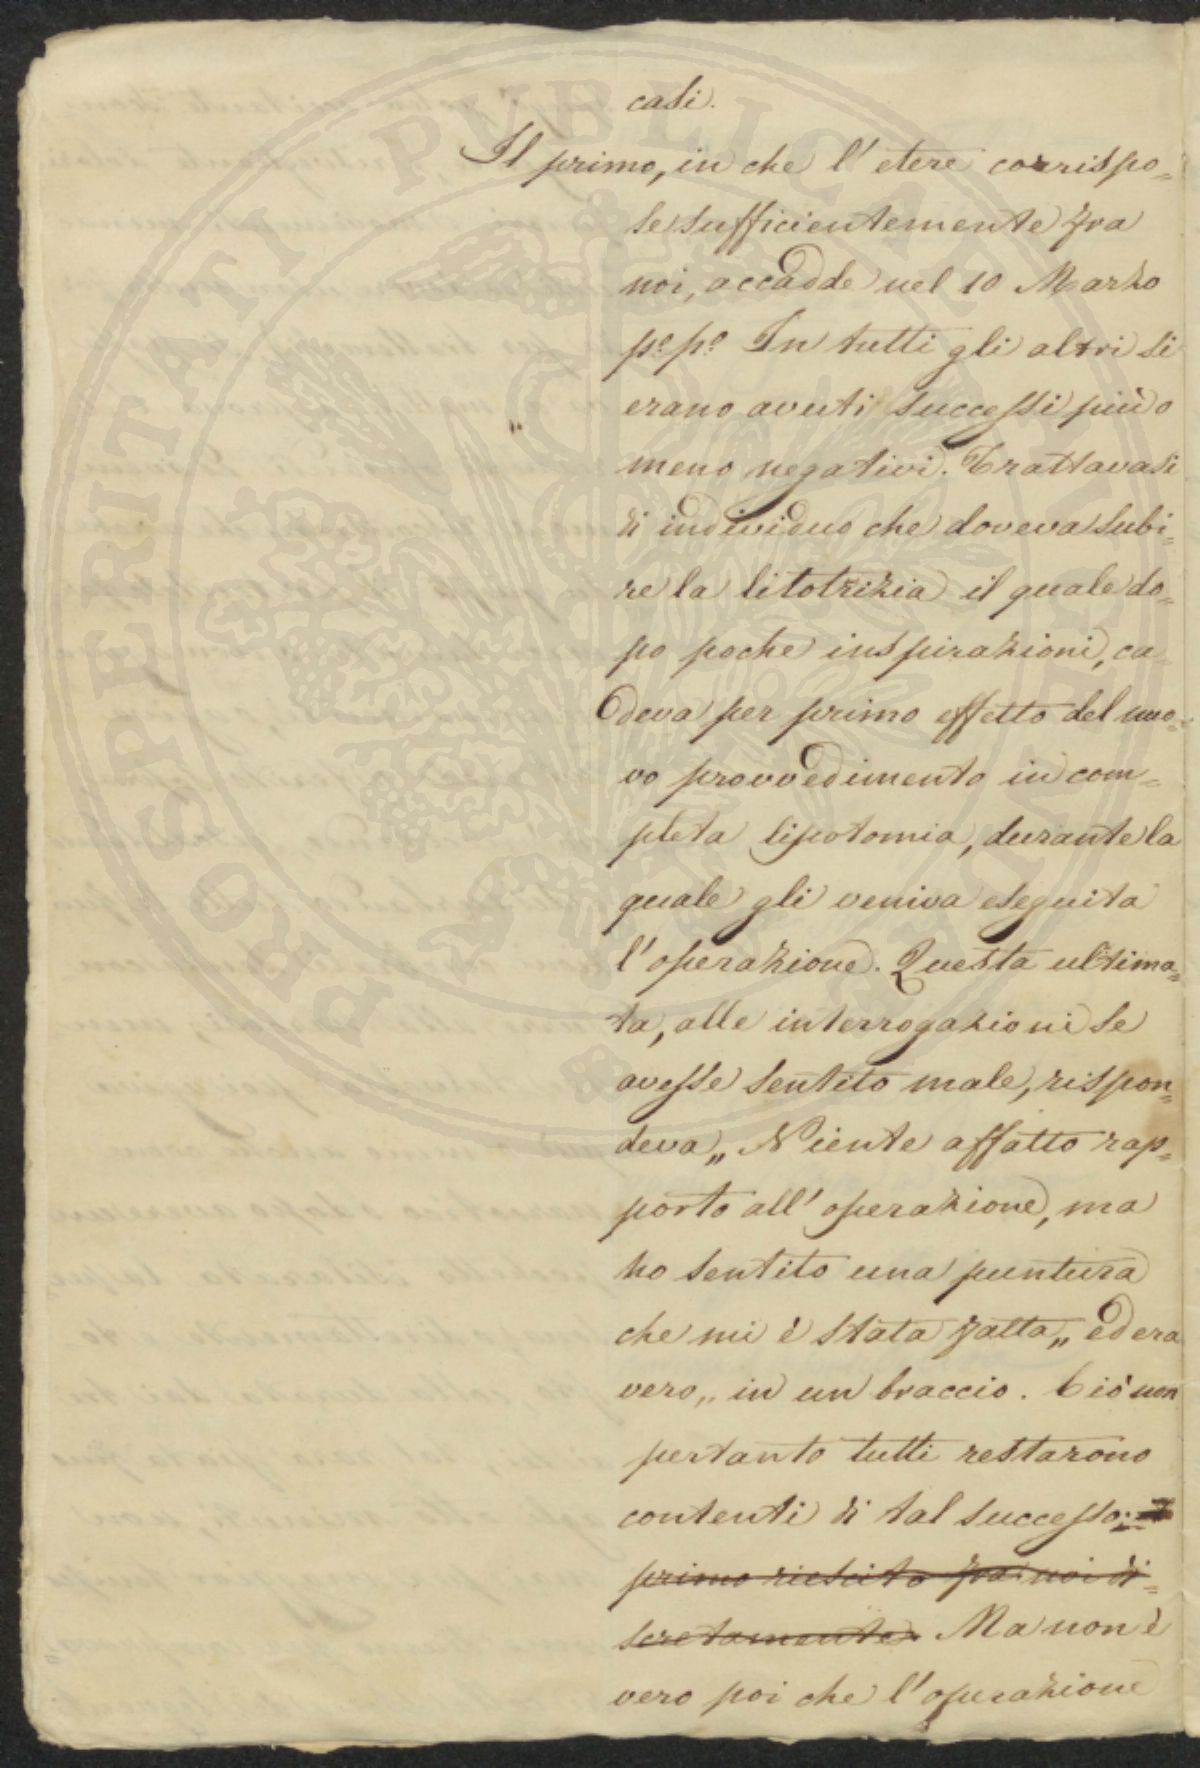 casi.
Il primo, in che l' etere corrispo=
se sufficientemente fra
noi, accadde nel 10 Marzo
p.o p.o In tutti gli altri si
erano avuti successi più o
meno negativi. Trattavasi
di individuo che doveva subi=
re la litotrizia il quale do=
po poche inspirazioni, ca
deva per primo effetto del nuo=
vo provvedimento in com=
pleta lipotomia, durante la
quale gli veniva eseguita
l' operazione. Questa ultima=
ta, alle interrogazioni se
avesse sentito male, rispon=
deva „ Niente affatto rap=
porto all' operazione, ma
ho sentito una puntura
che mi è stata fatta „ ed era
vero „ in un braccio. Ciò non
pertanto tutti restarono
contenti di tal successo.
primo riescito fra noi di=
scretamente. Ma non è
vero poi che l' operazione
PROSPERITATI PUBLICAE